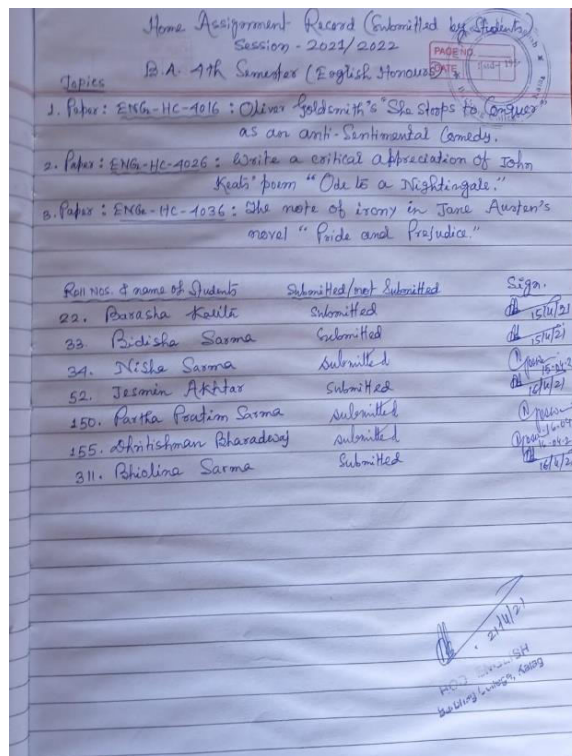 Home Assignment Record (Submitted by Students)
Session - 2021/2022
B.A. 4th Semester (English Honours)
PAGE NO.
DATE
Topics
1. Paper: ENG-HC-4016 : Oliver Goldsmith's "She Stoops to Conquer
as an anti-Sentimental Comedy.
2. Paper: ENG-HC-4026 : Write a critical appreciation of John
Keats' poem "Ode to a Nightingale."
3. Paper : ENG-HC-4036 : The note of irony in Jane Austen's
novel "Pride and Prejudice."
Roll Nos. & name of Students Submitted/not Submitted Sign.
22. Barasha Kalita Submitted 15/4/21
33. Bidisha Sarma Submitted 15/4/21
34. Nisha Sarma Submitted
52. Jesmin Akhtar Submitted 16/4/21
150. Partha Pratim Sarma Submitted
155. Dhritishman Bharadwaj Submitted
311. Bhiolina Sarma Submitted 16/4/21
21/4/21
HOD ENGLISH